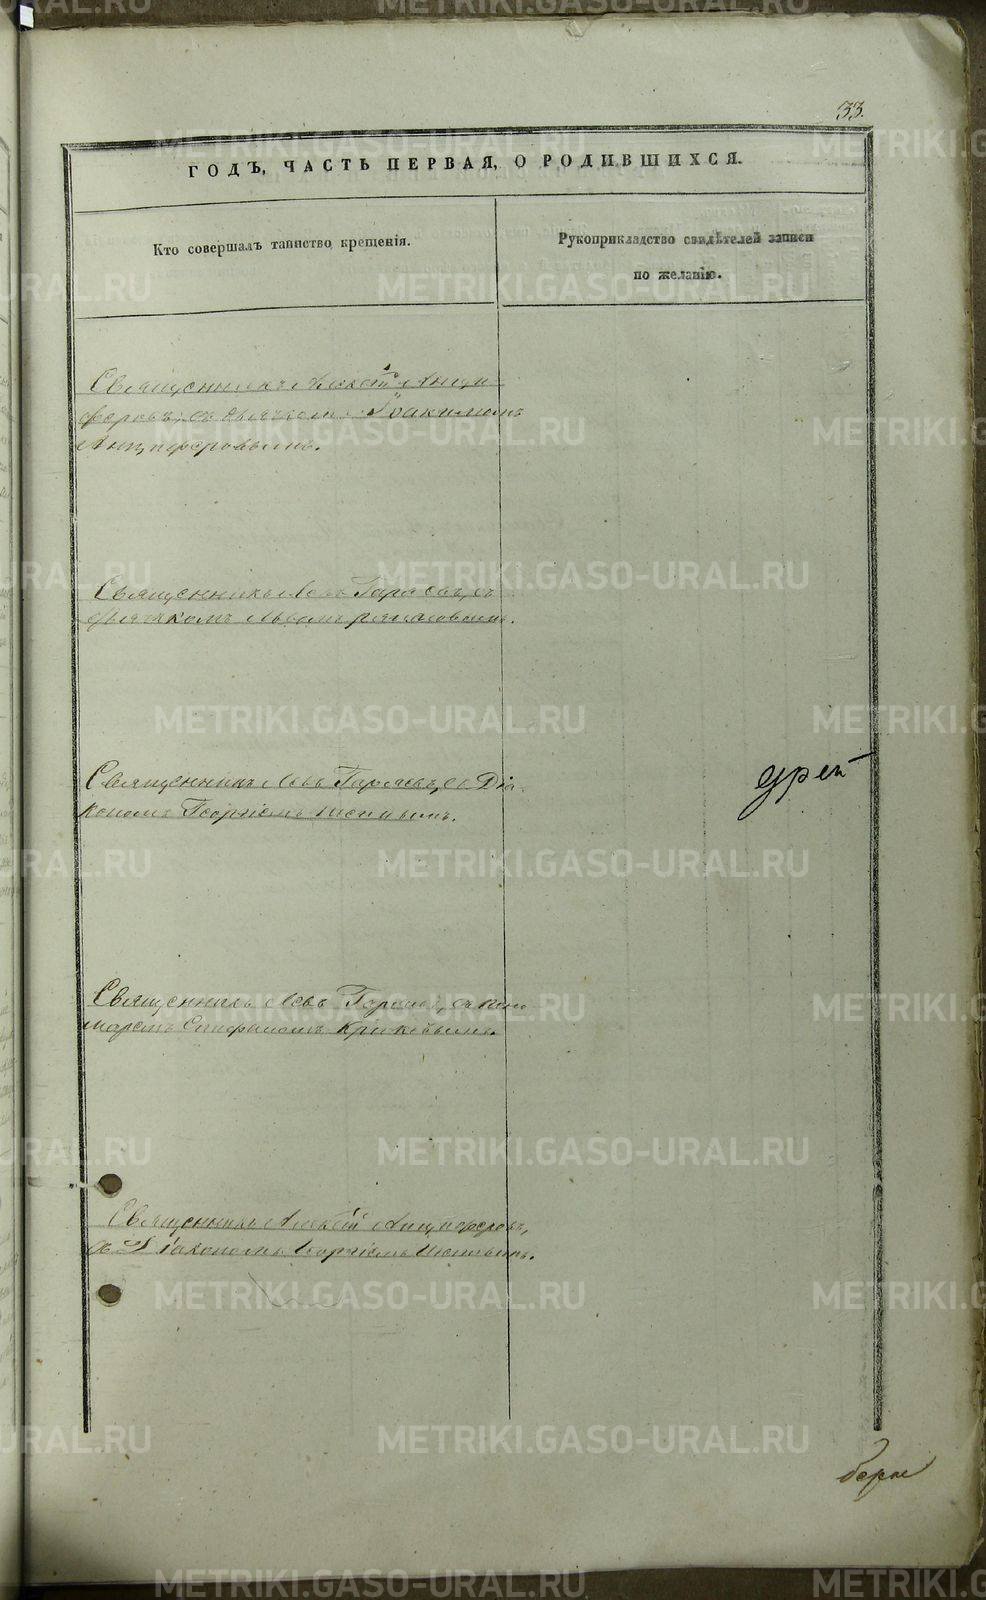 33.
ГОДЪ, ЧАСТЬ ПЕРВАЯ, О РОДИВШИХСЯ.
Кто совершалъ таинство крещенія.
Рукоприкладство свидѣтелей записи
по желанію.
Священникъ Алексѣй Анци
феровъ, съ дьячкомъ Іоакимомъ
Анциферовымъ.
Священникъ Левъ Гаряевъ, съ
дьячкомъ Львомъ
Священникъ Левъ Гаряевъ, съ Діа
кономъ Георгіемъ
Священникъ Левъ Гаряевъ, съ поно
маремъ Епифаномъ
Священникъ Алексѣй Анциферовъ,
съ Діакономъ Георгіемъ
METRIKI.GASO-URAL.RU